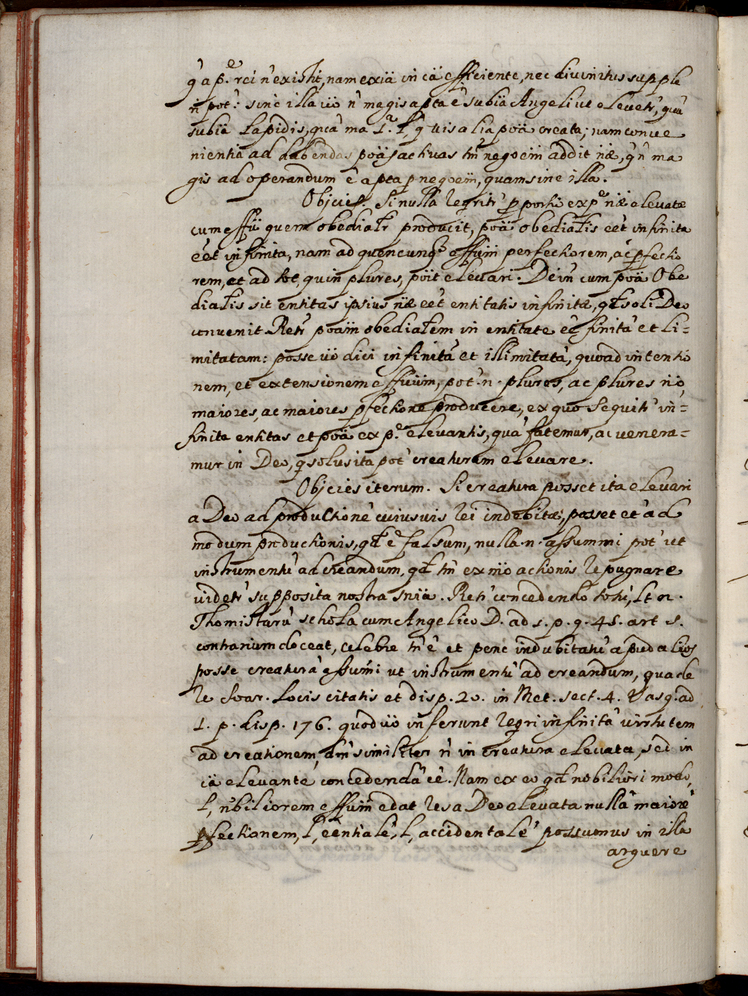 q̃ a p.e rei ñ existit, nam exiã in cã efficiente, nec divinitus supple
ñ pot.: sine illa vò ñ magis apta ê subiã Angeli ut elevet', quã
subiã Lapidis, quia ma 1.ª l, q̃ vis alia poã creata; nam conve
nientia ad habendas poãs activas tm̃ negoem̃ addit næ, q̃ ñ ma
gis ad operandum ê apta p negoem̃, quam sine illa.
Objcies. Si nulla reqrit' pporto ex p.e næ elevatæ
cum effũ quem obedialr̃ producit, poã obedialis eẽt infinita
eẽt infinita, nam ad quencunq̃ effum̃ perfectiorem, ac pfectio
rem, et ad hoc, quin plures, poit elevari. Dein cum poã Obe
dialis sit entitas ipsius næ eẽt entitatis infinitæ, qd̃ soli Deo
convenit. Retr̃ poam̃ obedialem in entitate eẽ finitã et li=
mitatam: posse vò dici infinitã et illimitatã, quoad intentio
nem, et extensionem effuum̃, pot' .n. plures, ac plures nio
maiores, ac maiores pfectione producere, ex quo sequit' in=
finita entitas et poã ex p.e elevantis, quã fatemur, ac venera=
mur in Deo, q̃ solus ita pot' creaturam elevare.
Objcies iterum. Si creatura posset ita elevari
a Deo ad productionẽ cuiusvis rei indebitæ, posset et' ad
modum productionis, qd̃ ê falsum, nulla .n. assummi pot' ut
instrumentũ ad creandum, qd̃ tm̃ ex nio actionis repugnare
videtr̃ supposita nostra sniã. Retr̃ concedendo totũ, l;t .n.
Thomistarũ schola cum Angelico D. ad 1. p. q. 45. art 5.
contrarium doceat, celebre tm̃ ê et penẽ indubitatũ apud alios
posse creaturã assumi ut instrumentũ ad creandum, qua de
re Soar. locis citatis et disp. 20. in Met. sect. 4. Vasq. ad
1. p. disp. 176. quod vò inferunt reqri infinitã virtutem
ad creationem, dm̃ similiter ñ in creatura elevata, sed in
cã elevante concedendã eẽ. Nam ex eo qd̃ nobiliori modo
l, nobiliorem effum̃ edat res a Deo elevata nullã maiorẽ
pfectionem, l, eentialẽ, l, accidentalẽ possumus in illa
arguere